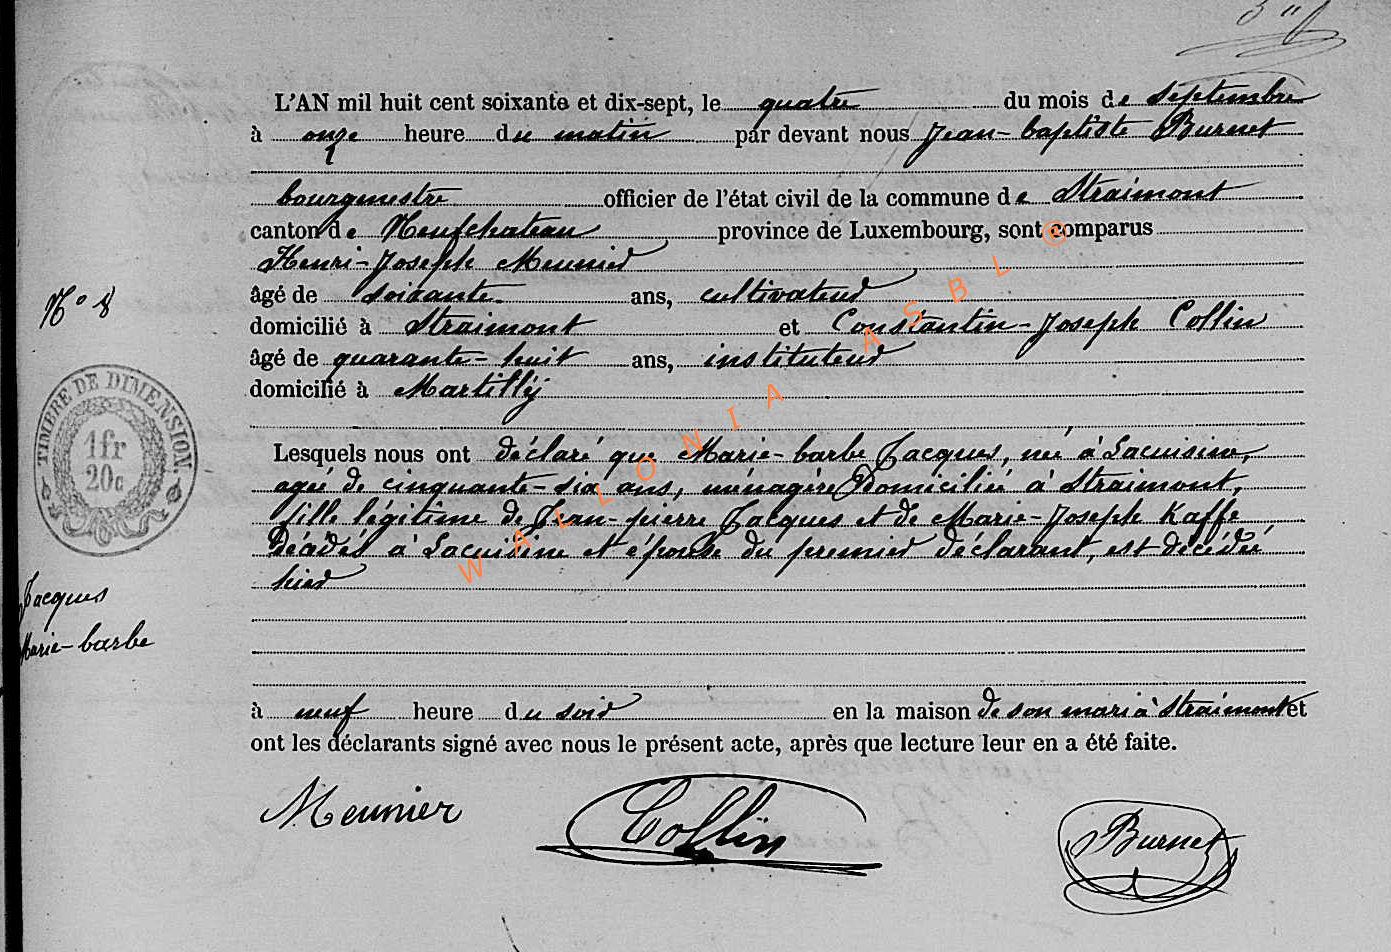 L'AN mil huit cent soixante et dix-sept, le quatre du mois de septembre
à onze heure du matin par devant nous Jean-baptiste Burnet
bourgmestre officier de l'état civil de la commune de Straimont
canton de Neufchateau province de Luxembourg, sont comparus
Henri-Joseph Meunier
N° 8
âgé de soixante ans, cultivateur
domicilié à Straimont et Constantin-Joseph Collin
âgé de quarante-huit ans, instituteur
domicilié à Martilly
TIMBRE DE DIMENSION.
1fr
20c
Lesquels nous ont déclaré que Marie-barbe Jacques, née à Lacuisine,
agée de cinquante-six ans, ménagère Domiciliée à Straimont,
fille légitime de Jean-pierre Jacques et de Marie-Joseph Kaffe
Décédés à Lacuisine et épouse du premier déclarant, est décédée
hier
Jacques
Marie-barbe
à neuf heure du soir en la maison de son mari à Straimont et
ont les déclarants signé avec nous le présent acte, après que lecture leur en a été faite.
Meunier Collin Burnet
WALLONIA ASBL ©